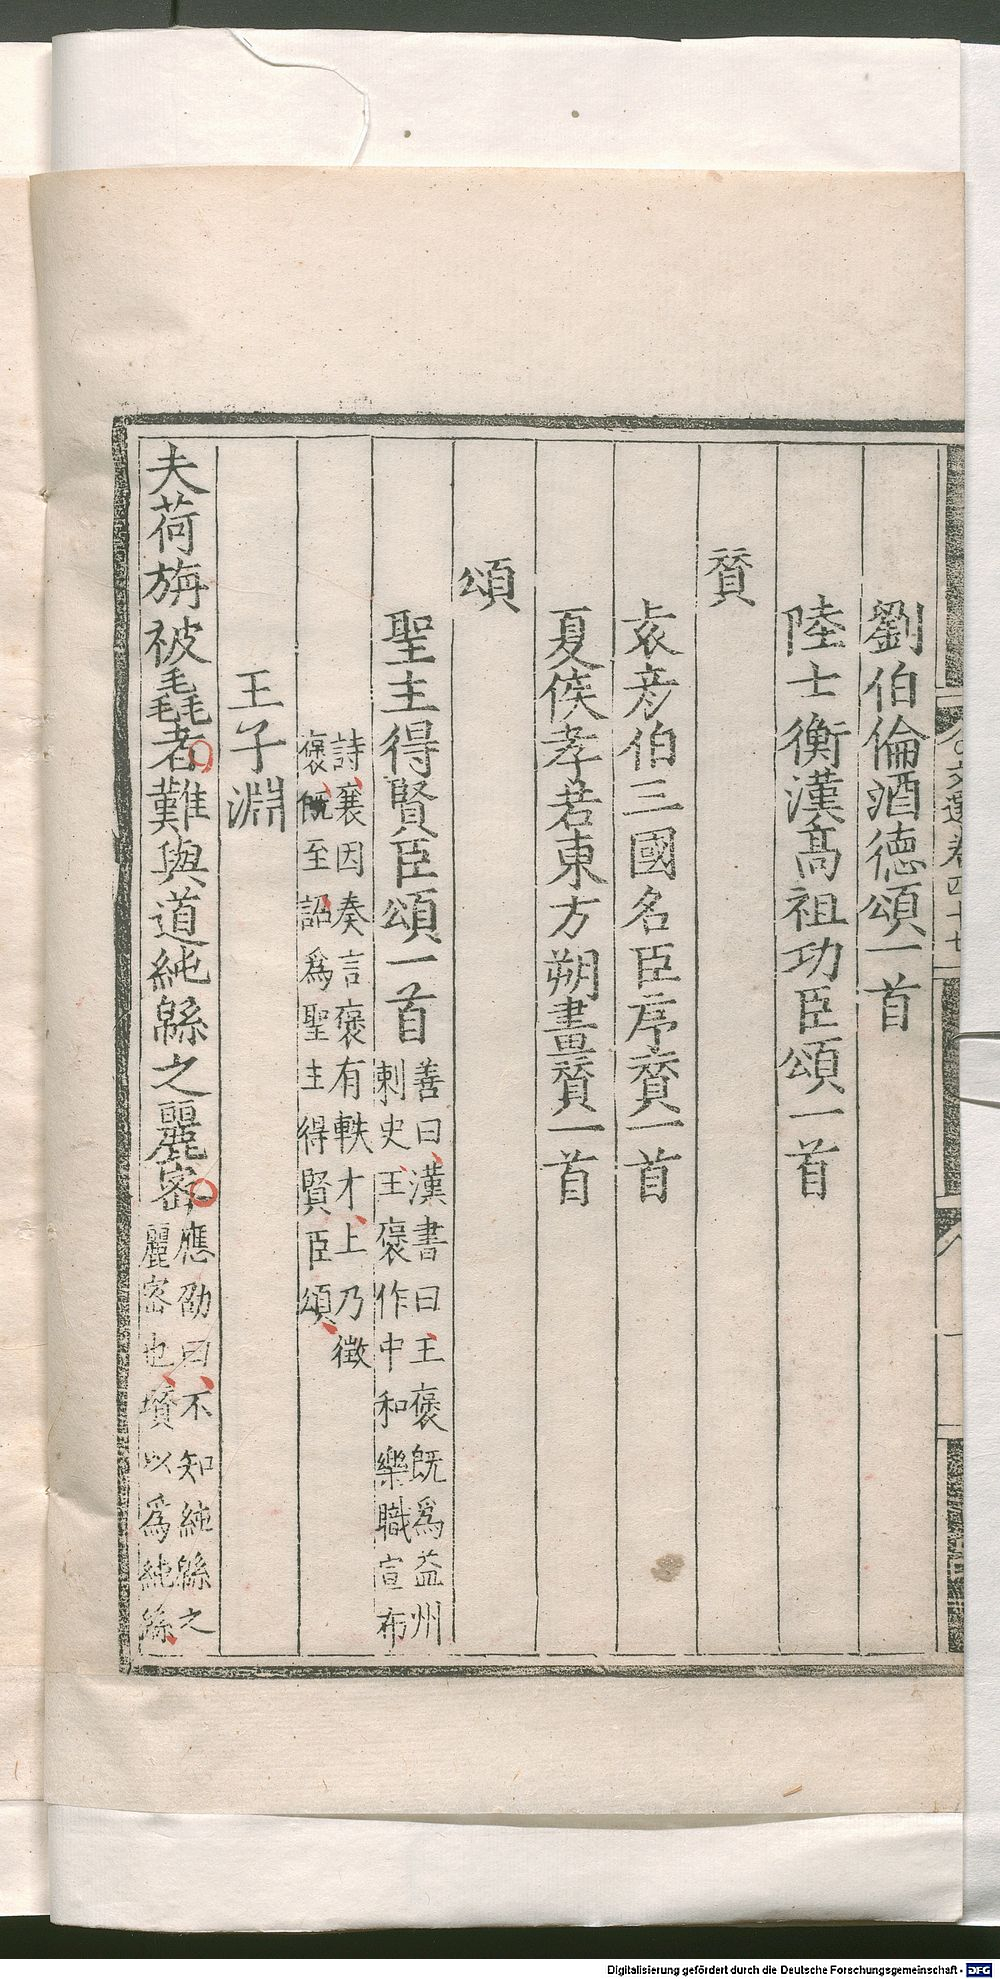 劉伯倫酒德頌一首
陸士衡漢高祖功臣頌一首
贊
袁彦伯三國名臣序贊一首
夏侯孝若東方朔畫贊一首
頌
聖主得賢臣頌一首
善曰漢書曰王褒既爲益州
刺史王褒作中和樂職宣布
詩襄因奏言褒有軼才上乃徵
褒既至詔爲聖主得賢臣頌
王子淵
夫荷旃被毳者難與道純緜之麗密
應劭曰不知純緜之
麗密也
以爲純緜
文選卷四十七
Digitalisierung gefördert durch die Deutsche Forschungsgemeinschaft - DFG